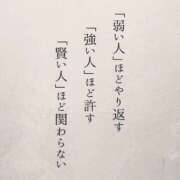 「弱い人」ほどやり返す
「強い人」ほど許す
「賢い人」ほど関わらない